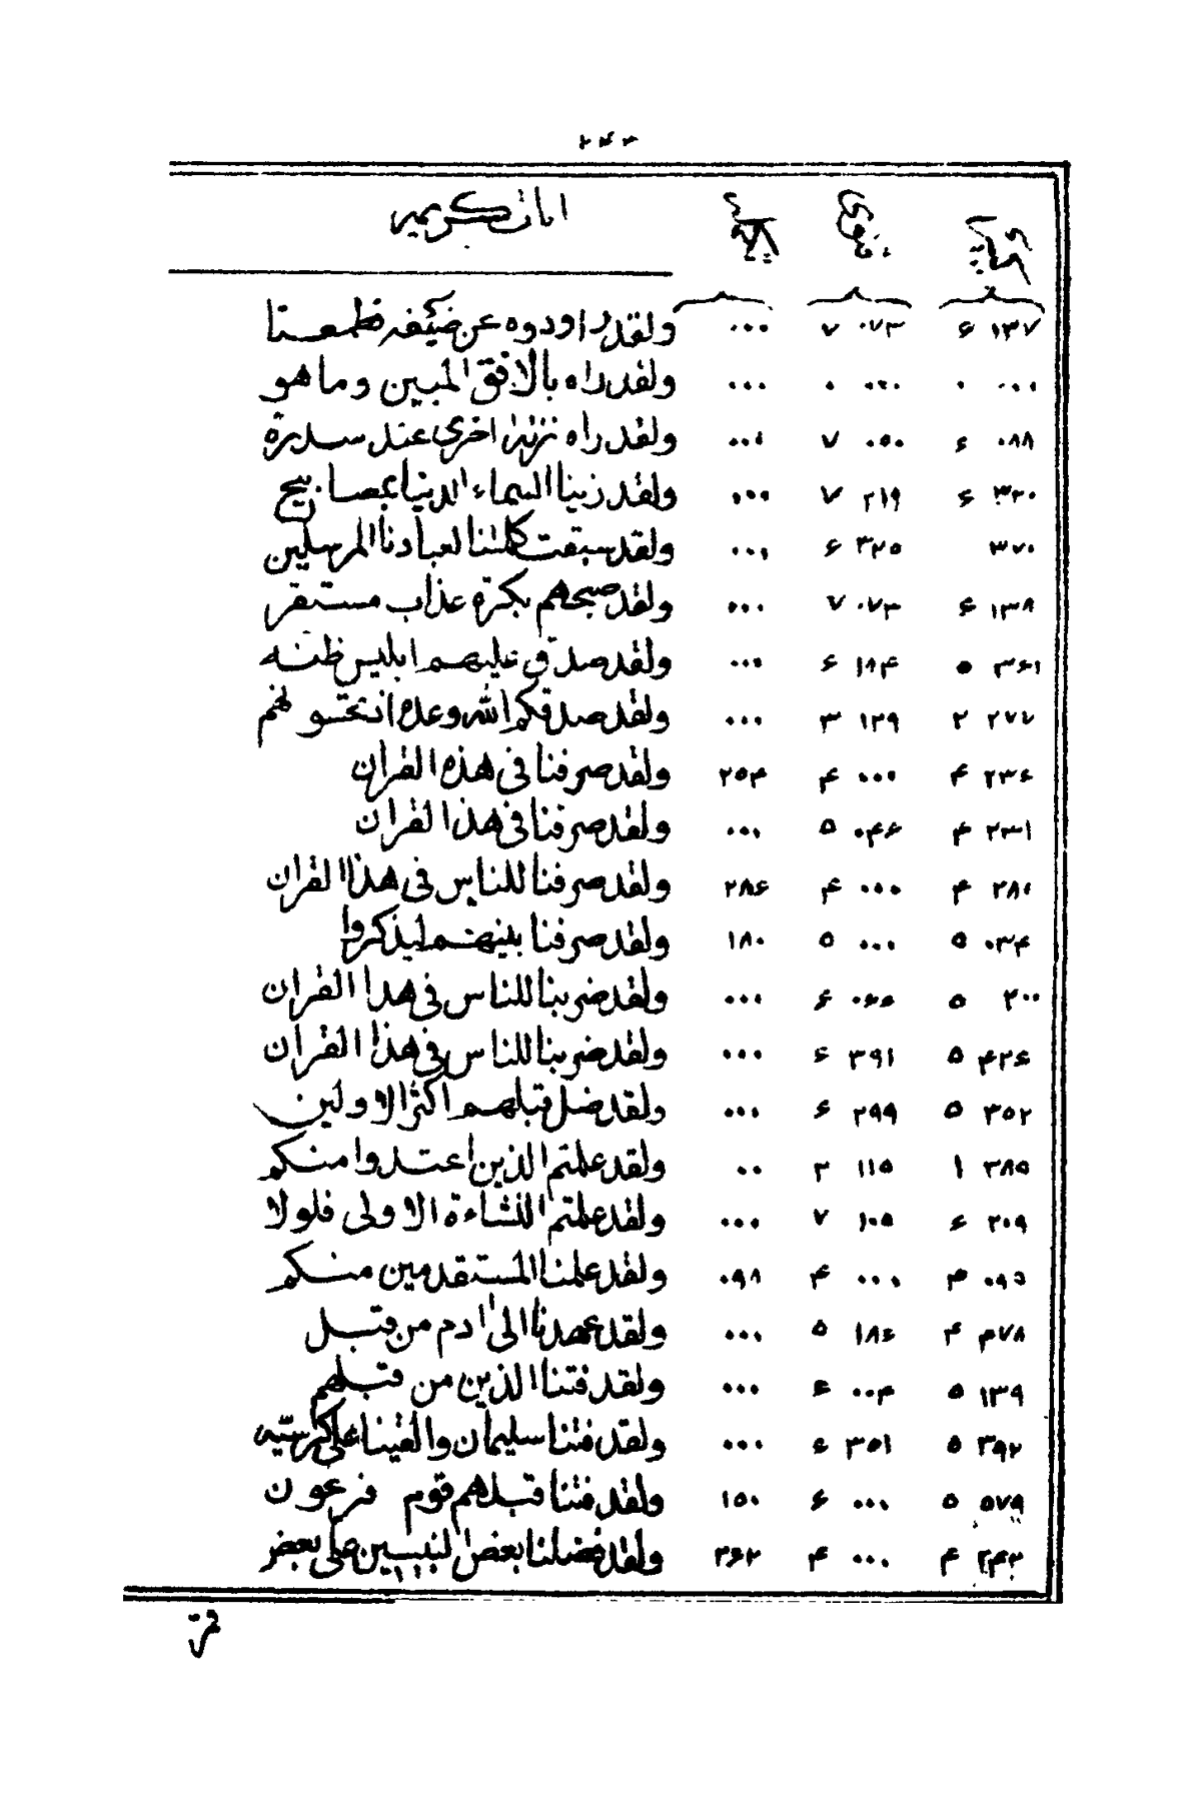 ۲۴۳
ايات كريمه
۱۳۷ ۶ ۰۷۳ ۷ ۰۰۰ ولقد راودوه عن ضيفه فطمسنا
۰۰۰ ۰ ۰۰۰ ۰ ۰۰۰ ولقد راه بالافق المبين وما هو
۰۸۸ ۶ ۰۵۰ ۷ ۰۰۰ ولقد راه نزلة اخرى عند سدرة
۳۲۰ ۶ ۲۱۹ ۷ ۰۰۰ ولقد زينا السماء الدنيا بمصابيح
۳۷۰ ۳۲۵ ۶ ۰۰۰ ولقد سبقت كلمتنا لعبادنا المرسلين
۱۳۸ ۶ ۰۷۳ ۷ ۰۰۰ ولقد صبحهم بكرة عذاب مستقر
۳۶۱ ۵ ۱۸۴ ۶ ۰۰۰ ولقد صدق عليهم ابليس ظنه
۲۷۷ ۲ ۱۲۹ ۳ ۰۰۰ ولقد صدقكم الله وعده اذ تحسونهم
۲۳۶ ۴ ۰۰۰ ۴ ۲۵۴ ولقد صرفنا فى هذه القران
۲۳۱ ۴ ۰۴۶ ۵ ۰۰۰ ولقد صرفنا فى هذا القران
۲۸۰ ۴ ۰۰۰ ۴ ۲۸۶ ولقد صرفنا للناس فى هذا القران
۰۳۴ ۵ ۰۰۰ ۵ ۱۸۰ ولقد صرفنا بينهم ليذكروا
۲۰۰ ۵ ۰۶۶ ۶ ۰۰۰ ولقد ضربنا للناس فى هذا القران
۴۲۶ ۵ ۳۹۱ ۶ ۰۰۰ ولقد ضربنا للناس فى هذا القران
۳۵۲ ۵ ۲۹۹ ۶ ۰۰۰ ولقد ضل قبلهم اكثر الاولين
۳۸۵ ۱ ۱۱۵ ۲ ۰۰ ولقد علمتم الذين اعتدوا منكم
۲۰۹ ۶ ۱۰۵ ۷ ۰۰۰ ولقد علمتم النشاءة الاولى فلولا
۰۹۵ ۴ ۰۰۰ ۴ ۰۹۸ ولقد علمنا المستقدمين منكم
۴۷۸ ۴ ۱۸۶ ۵ ۰۰۰ ولقد عهدنا الى ادم من قبل
۱۳۹ ۵ ۰۰۴ ۶ ۰۰۰ ولقد فتنا الذين من قبلهم
۳۹۲ ۵ ۳۵۱ ۶ ۰۰۰ ولقد فتنا سليمان والقينا على كرسيه
۵۷۹ ۵ ۰۰۰ ۶ ۱۵۰ ولقد فتنا قبلهم قوم فرعون
۲۴۲ ۴ ۰۰۰ ۴ ۲۶۲ ولقد فضلنا بعض النبيين على بعض